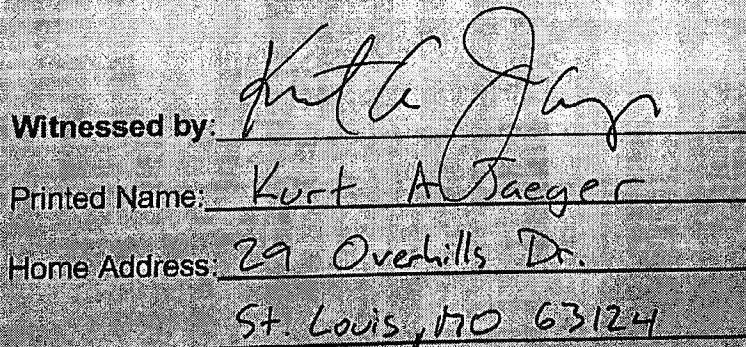 Witnessed by: Kurt A Jaeger
Printed Name: Kurt A Jaeger
Home Address: 29 Overhills Dr.
St. Louis, MO 63124